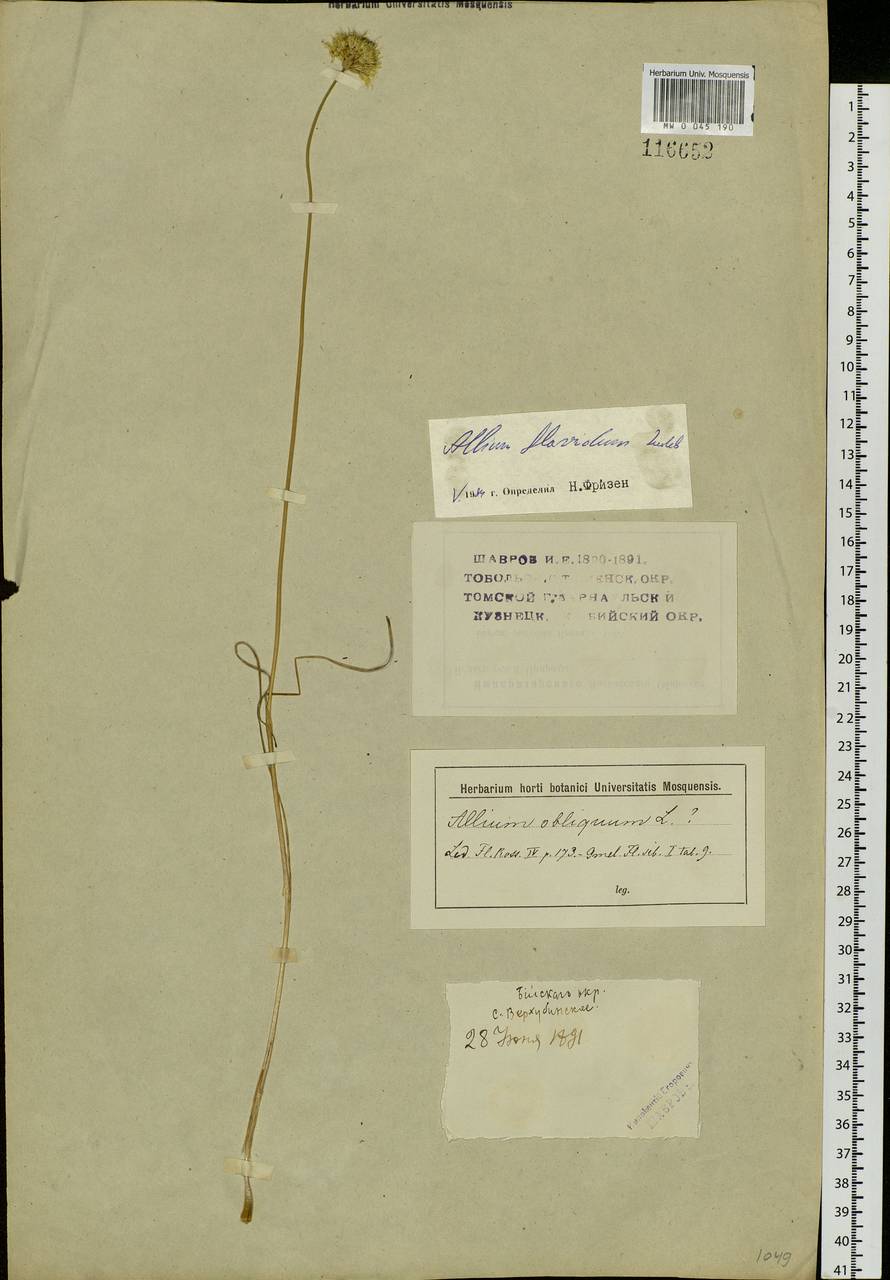 Herbarium Universitatis Mosquensis
Herbarium Univ. Mosquensis
MW 0 045 190
116652
Allium flavidum Ledeb
V. 1984 г. Определил Н.Фризен
ШАВРОВ И. Е. 1890-1891.
ОКР.
ТОМСКОЙ
КУЗНЕЦК. БИЙСКИЙ ОКР.
Herbarium horti botanici Universitatis Mosquensis.
Allium obliquum L. ?
Led. Fl. Ross. IV p. 173. - Gmel. Fl. sib. I tab. 9.
leg.
Бійскаго окр.
с. Верхубинское.
28 Іюня 1891
1049
1
2
3
4
5
6
7
8
9
10
11
12
13
14
15
16
17
18
19
20
21
22
23
24
25
26
27
28
29
30
31
32
33
34
35
36
37
38
39
40
41